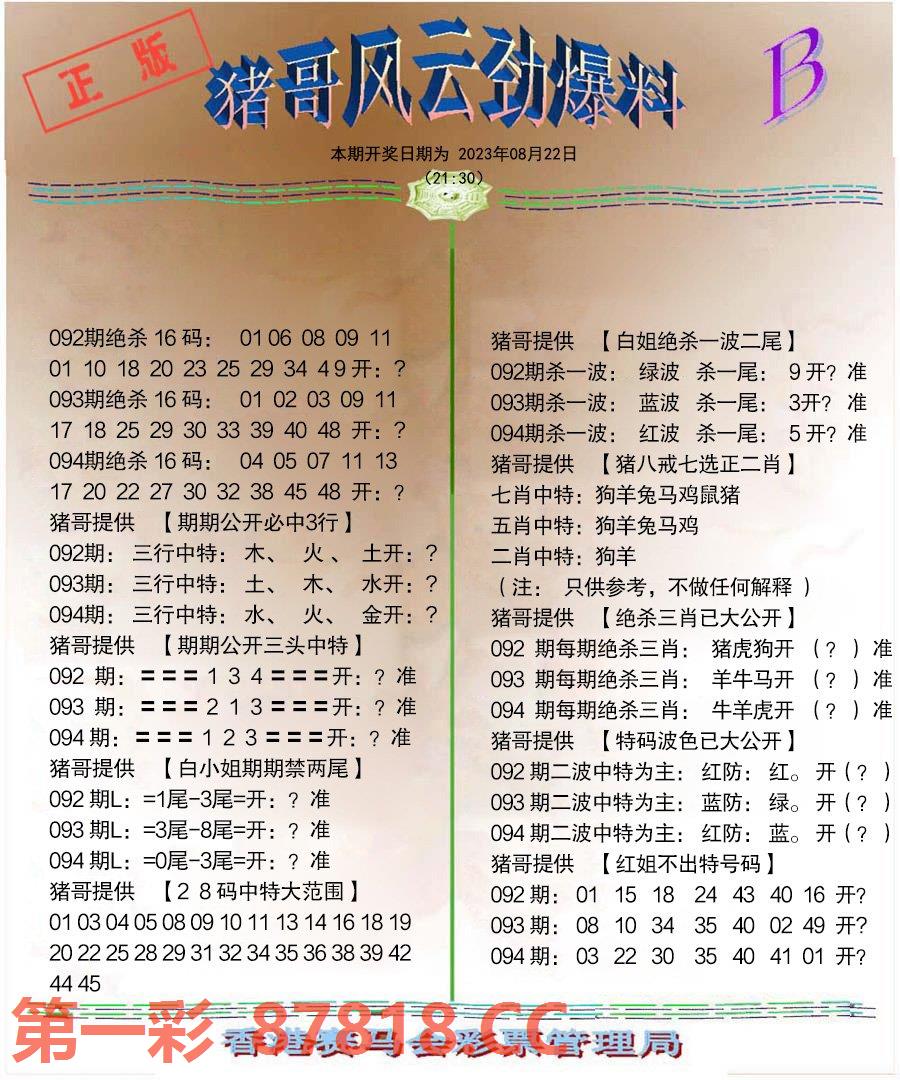 正版
猪哥风云劲爆料
B
本期开奖日期为 2023年08月22日
(21:30)
092期绝杀 16 码： 01 06 08 09 11
01 10 18 20 23 25 29 34 4 9 开：?
093期绝杀 16 码： 01 02 03 09 11
17 18 25 29 30 33 39 40 48 开：?
094期绝杀 16 码： 04 05 07 11 13
17 20 22 27 30 32 38 45 48 开：?
猪哥提供 【期期公开必中3行】
092期： 三行中特： 木、 火 、 土开：?
093期： 三行中特： 土、 木、 水开：?
094期： 三行中特： 水、 火、 金开：?
猪哥提供 【期期公开三头中特】
092 期：〓〓〓１３４〓〓〓开：? 准
093 期：〓〓〓２１３〓〓〓开：? 准
094 期：〓〓〓１２３〓〓〓开：? 准
猪哥提供 【白小姐期期禁两尾】
092 期L：=1尾-3尾=开：? 准
093 期L：=3尾-8尾=开：? 准
094 期L：=0尾-3尾=开：? 准
猪哥提供 【２８码中特大范围】
01 03 04 05 08 09 10 11 13 14 16 18 19
20 22 25 28 29 31 32 34 35 36 38 39 42
44 45
猪哥提供 【白姐绝杀一波二尾】
092期杀一波： 绿波 杀一尾： 9 开? 准
093期杀一波： 蓝波 杀一尾： 3开? 准
094期杀一波： 红波 杀一尾： 5 开? 准
猪哥提供 【猪八戒七选正二肖】
七肖中特：狗羊兔马鸡鼠猪
五肖中特：狗羊兔马鸡
二肖中特：狗羊
（注： 只供参考，不做任何解释 ）
猪哥提供 【绝杀三肖已大公开】
092 期每期绝杀三肖： 猪虎狗开 （? ）准
093 期每期绝杀三肖： 羊牛马开 （? ）准
094 期每期绝杀三肖： 牛羊虎开 （? ）准
猪哥提供 【特码波色已大公开】
092 期二波中特为主：红防：红。开（? ）
093 期二波中特为主：蓝防：绿。开（? ）
094 期二波中特为主：红防：蓝。开（? ）
猪哥提供 【红姐不出特号码】
092 期： 01 15 18 24 43 40 16 开?
093 期： 08 10 34 35 40 02 49 开?
094 期： 03 22 30 35 40 41 01 开?
第一彩 87818.CC
香港赛马会彩票管理局